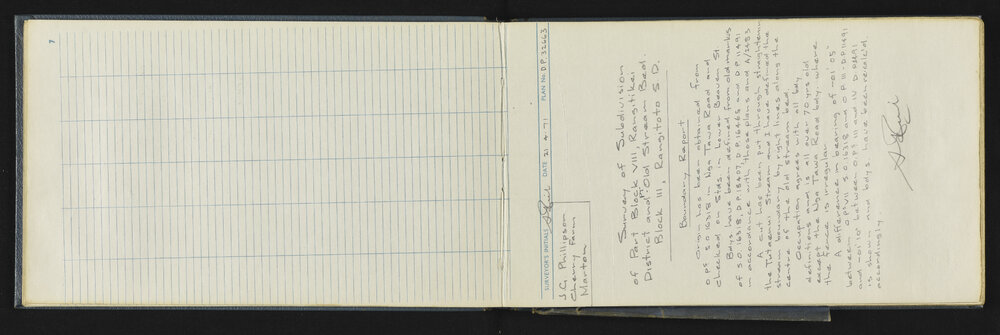 7
SURVEYOR'S INITIALS DATE 21.4.71 PLAN No. D.P. 32663
J.G. Phillipson
Cherry Farm
Marton
Survey of Subdivision
of Part Block VIII, Rangitikei
District and Old Stream Bed
Block III, Rangitoto S.D.
Boundary Report
Origin has been obtained from
O.P's S.O. 16318 in Nga Tawa Road and
checked on Stas in Lower Beaven St
Bdys have been defined from old marks
of S.O. 16318, D.P. 18407, D.P. 16465 and D.P. 11491
in accordance with those plans and A/2483
A cut has been put through straightening
the Tutaenui Stream and I have defined the
stream boundary by right lines along the
centre of the old stream bed.
Occupation agrees with all bdy
definitions and is all over 70 yrs old
except the Nga Tawa Road bdy. where
the fence is irregular.
A difference in bearing of -01' 05"
between OP VII S.O. 16318 and O.P. III D.P. 11491
and between O.P. III and IV D.P. 11491
is shown and bdys. have been recalc'd
accordingly